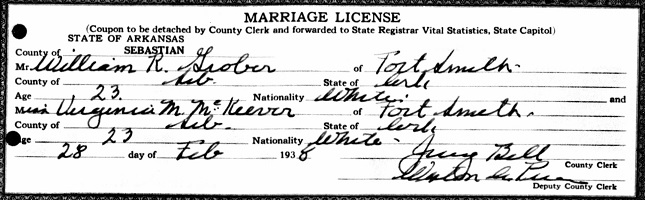 MARRIAGE LICENSE
(Coupon to be detached by County Clerk and forwarded to State Registrar Vital Statistics, State Capitol)
STATE OF ARKANSAS
County of SEBASTIAN
Mr. William R. Grober of Fort Smith
County of Seb. State of Ark.
Age 23. Nationality White. and
Miss Virginia M. McKeever of Fort Smith.
County of Seb. State of Ark.
Age 23 Nationality White
28 day of Feb 1938 June Bell
County Clerk
Deputy County Clerk